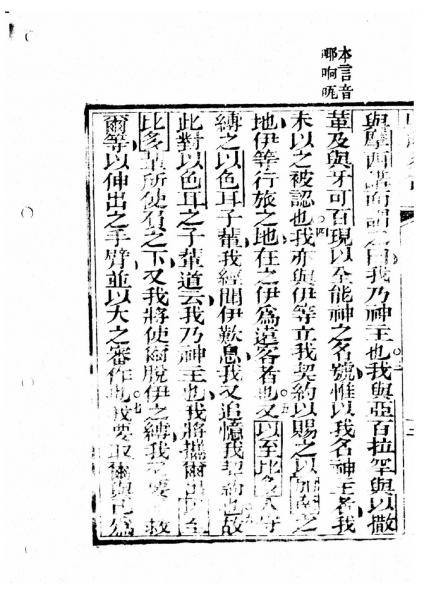 本言音
哪
與摩西講而謂之曰我乃神主也○三我與亞百拉罕與以撒
革及與牙可百現以全能神之名號惟以我名神主者我
未以之被認也○四我亦與伊等立我契約以賜之以加南之
地伊等行旅之地在之伊為遠客者也○五又以至比多人守
縛之以色耳子輩我經聞伊歎息我又追憶我契約也故
此對以色耳之子輩道云我乃神主也我將攜爾出以至
比多輩所使負之下又我將使爾脫伊之縛我又要救
爾等以伸出之手臂並以大之審作也○七我要取爾與己為